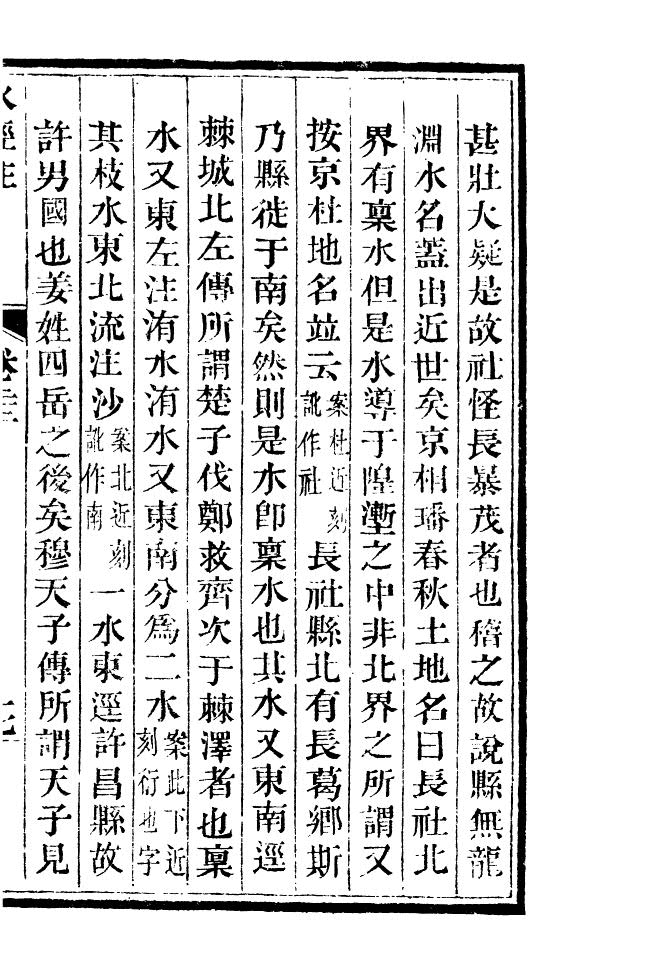 甚壯大疑是故社怪長暴茂者也稽之故說縣無龍
淵水名蓋出近世矣京相璠春秋土地名曰長社北
界有稟水但是水導于隍壍之中非北界之所謂又
按京杜地名竝云案杜近刻訛作社長社縣北有長葛鄉斯
乃縣徙于南矣然則是水卽稟水也其水又東南逕
棘城北左傳所謂楚子伐鄭救齊次于棘澤者也稟
水又東左注洧水洧水又東南分爲二水案此下近刻衍也字
其枝水東北流注沙案北近刻訛作南一水東逕許昌縣故
許男國也姜姓四岳之後矣穆天子傳所謂天子見
水經注